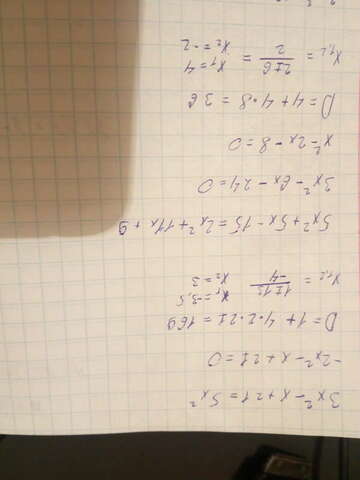 3x²-x+21=5x²
-2x²-x+21=0
D=1+4·2·21=169
x₁,₂ = 1±13/-4 x₁=-3,5
x₂=3
5x²+5x-15=2x²+11x+9
3x²-6x-24=0
x²-2x-8=0
D=4+4·8=36
x₁,₂ = 2±6/2 = x₁=4
x₂=-2